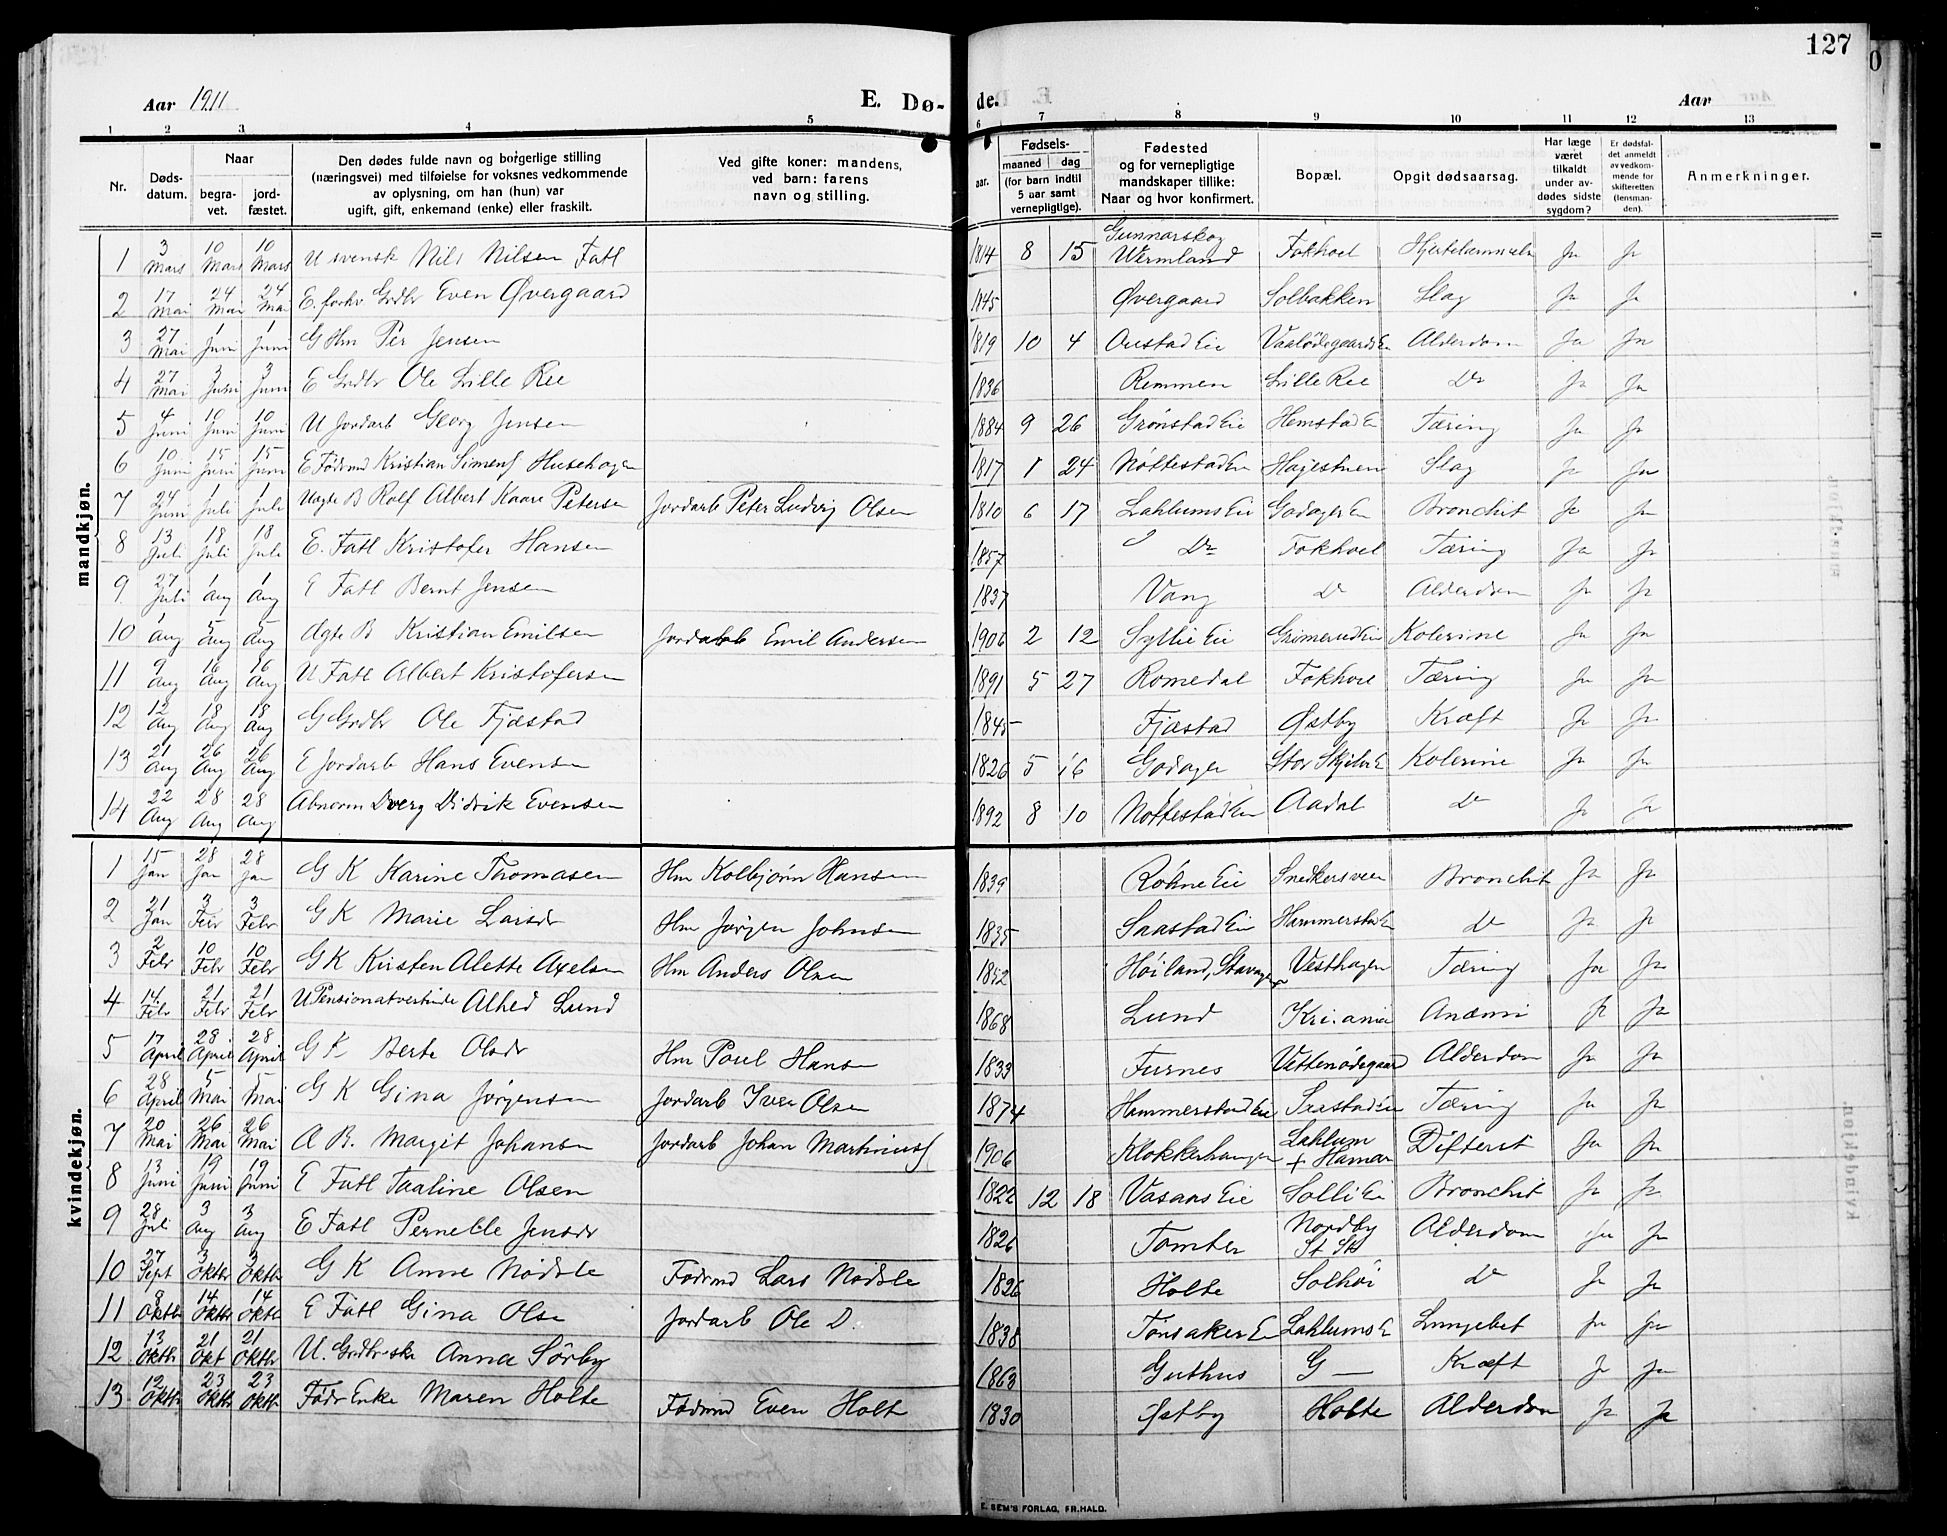 127
Aar 1911 E. Dø- de. Aar
1 2 3. 4 5 6 7 8 9 10 11 12 13
Nr. Døds-datum. Naar begra-vet. jord-fæstet. Den dødes fulde navn og borgerlige stilling (næringsvei) med tilføielse for voksnes vedkommende av oplysning, om han (hun) var ugift, gift, enkemand (enke) eller fraskilt. Ved gifte koner: mandens, ved barn: farens navn og stilling. Fødsels- aar. maaned dag (for barn indtil 5 aar samt vernepligtige). Fødested og for vernepligtige mandskaper tillike: Naar og hvor konfirmert. Bopæl. Opgit dødsaarsag. Har læge været tilkaldt under av-dødes sidste sygdom? Er dødsfal-det anmeldt av vedkom-mende for skifteretten (lensman-den). Anmerkninger.
mandkjøn.
1 3 Mars 10 Mars 10 Mars U svensk Nils Nilsen Fatl 1814 8 15 Gunnarskog Wermland Fokhoel Ja Ja
2 17 Mai 24 Mai 24 Mai E. forhv Grdbr Even Øvergaard 1845 Øvergaard Solbakken Slag Ja Ja
3 27 Mai 1 Juni 1 Juni G Hm Per Jensen 1819 10 4 Oustad Eie Alderdom Ja Ja
4 27 Mai 3 Juni 3 Juni E Grdbr Ole Lille Ree 1836 Remmen Lille Ree Do Ja Ja
5 4 Juni 10 Juni 10 Juni U Jordarb Georg Jensen 1884 9 26 Grønstad Eie Hemstad E Tæring Ja Ja
6 10 Juni 15 Juni 15 Juni E Fødrmd Kristian Simens Husehagen 1817 1 24 Nøttestad Eie Slag Ja Ja
7 24 Juni 1 Juli 1 Juli Uægte B Rolf Albert Kaare Petersen Jordarb Peter Ludvig Olsen 1810 6 17 Lahlums Eie Godager E Bronchit Ja Ja
8 13 Juli 18 Juli 18 Juli E. Fatl Kristofer Hansen 1857 Do Fokhoel Tæring Ja Ja
9 27 Juli 1 Aug 1 Aug E Fatl Bernt Jensen 1837 Vang Do Alderdom Ja Ja
10 1 Aug 5 Aug 5 Aug Ægte B Kristian Emilsen Jordarb Emil Andersen 1906 2 12 Syllie Eie Grimerud Eie Kolerine Ja Ja
11 9 Aug 16 Aug 16 Aug U Fatl Albert Kristofersen 1891 5 27 Romedal Fokhoel Tæring Ja Ja
12 12 Aug 18 Aug 18 Aug G Grdbr Ole Fjæstad 1845 Fjæstad Østby Kræft Ja Ja
13 21 Aug 26 Aug 26 Aug E Jordarb Hans Evensen 1826 5 16 Godager Kolerine Ja Ja
14 22 Aug 28 Aug 28 Aug Abnorm Dverg Didrik Evensen 1892 8 10 Nøttestad Eie Aadal Do Ja Ja
kvindekjøn.
1 15 Jan 28 Jan 28 Jan G K Karine Thomasen Hm Kolbjørn Hansen 1839 Røhne Eie Snedkersveen Bronchit Ja Ja
2 21 Jan 3 Febr 3 Febr G K Marie Larsdr Hm Jørgen Johnsen 1835 Saastad Eie Hammerstad E Do Ja Ja
3 2 Febr 10 Febr 10 Febr G K Kirsten Alette Axelsen Hm Anders Olsen 1852 Høiland, Stavanger Vesthagen Tæring Ja Ja
4 14. Febr 21 Febr 21 Febr U Pensionatvertinde Alhed Lund 1868 Lund Kri.ania Anæmi Ja Ja
5 17 April 28 April 28 April G K Berte Olsdr Hm Poul Hansen 1833 Furnes Vettenødegaard Alderdom Ja Ja
6 28 April 5 Mai 5 Mai G K Gina Jørgensen Jordarb Iver Olsen 1874 Hammerstad Eie Saastad Eie Tæring Ja Ja
7 20 Mai 26 Mai 26 Mai A B. Margit Johansen Jordarb Johan Martinius 1906 Klokkerhaugen Lahlum + Hamar Difterit Ja Ja
8 13 Juni 19 Juni 19 Juni E Fatl Taaline Olsen 1822 12 18 Vasaas Eie Solli Eie Bronchit Ja Ja
9 28 Juli 3 Aug 3 Aug E Fatl Pernelle Jensdr 1826 Tomter Nordby St St Alderdom Ja Ja
10 27 Sept 3 Oktbr 3 Oktbr G K Anne Nødsle Fødrmd Lars Nødsle 1826 Holte Solhøi Do Ja Ja
11 8 Oktbr 14 Oktbr 14 Oktbr E Fatl Gina Olsen Jordarb Ole D. 1838 Tønsaker E Lahlums E Lungebet Ja Ja
12 13 Oktbr 21 Okt 21 Oktbr U. Grdbrske Anna Sørby 1863 Guthus G — Kræft Ja Ja
13 12 Oktbr 23 Oktbr 23 Oktbr Fødr Enke Maren Holte Fødrmd Even Holt 1830 Østby Holte Alderdom Ja Ja
E. SEM'S FORLAG, FR.HALD.